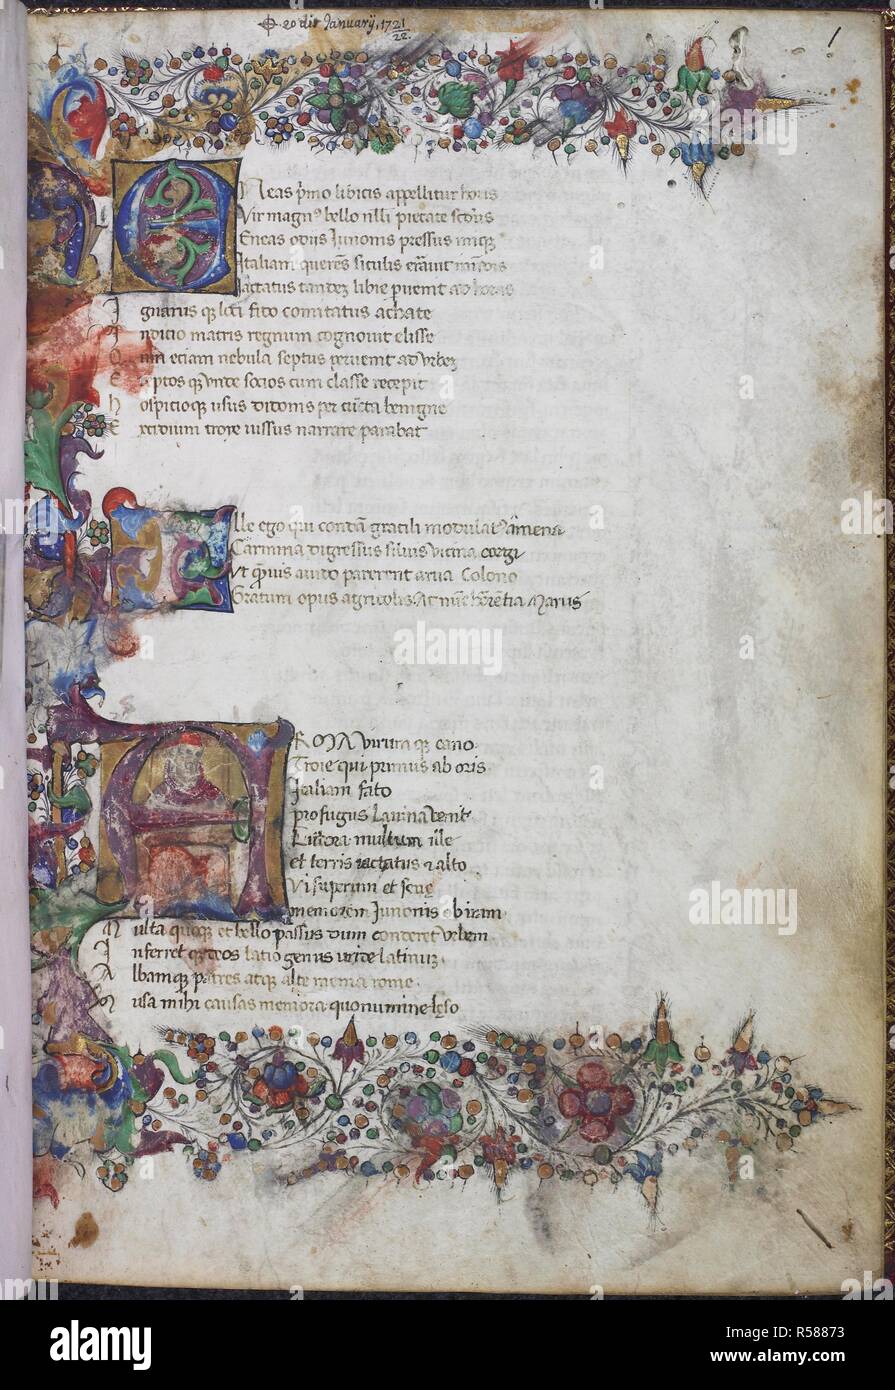 20 die Januarij, 1721/22.
1
Eneas p̄mo libicis appellitur horis
Vir magn⁹ bello nlli pietate sc̄dus
Eneas odijs Iunonis pressus iniq̨
Italiam querēs siculis erāuit in ūdis
Iactatus tandeʒ libie ꝑuenit ad horas
Ignarus q̨ loci fido comitatus achate
Indicio matris regnum cognouit elisse
Quin eciam nebula septus ꝑuenit ad vrbeʒ
E aptos q̨ vnde socios cum classe recepit
hospicioq̨ usus didonis per cūcta benigne
Excidium troye iussus narrare parabat
Ille ego qui condā gracili modulat⁹ Auena
Carmina digressus siluis vicina coegi
Vt q̄uis auido parerent arua Colono
Gratum opus agricolis At nūc horrētia Martis
ARMA virum q̨ cano
Troie qui primus ab oris
Italiam fato
profugus Lauina venit
Littora multum ille
et terris iactatus & alto
Vi superum et seuę
memorem Iunonis ob iram
Multa quoq̨ et bello passus dum conderet vrbem
Inferret q̨ deos latio genus vnde latinuʒ
Albamq̨ patres atq̨ alte menia rome
Musa mihi causas memora quo numine lęso
alamy
alamy
Image ID: R58873
www.alamy.com